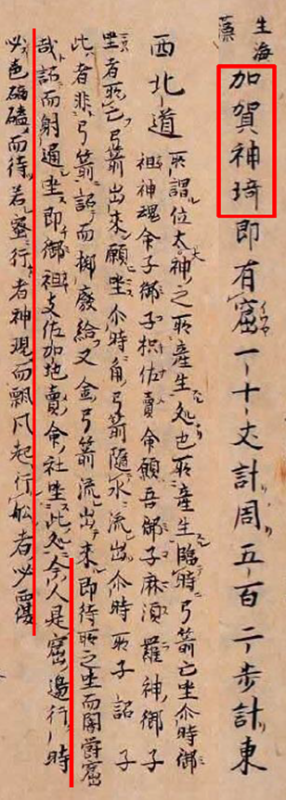 生海
藻
加賀神埼即有窟一十丈計周五百二步計東
西北道
所謂位太神之所産生処也所産生臨時弓箭亡坐尒時御
祖神魂命子御子枳佐賣命願吾御子麻湏羅神御子
坐者所亡弓箭出來願坐尒時角弓箭隨水流出尒時所子詔子
此者非弓箭詔而擲廢給又金弓箭流出來即待所之坐而闇欝窟
哉詔而射通坐即御祖支佐加地賣命社坐此処今人是窟邉行時
必色磅磕而待若蜜行者神現而飄風起行舩者必覆